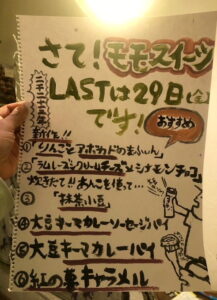 さて！モモスイーツ
LASTは29日(金)
です！
おすすめ
新作!!
①「りんごとアボカドのまふぃん」
②「ラムレーズンクリームチーズとシナモンチョコ」
炊きたて!!あんこを使って…
③「抹茶小豆」
④大豆キーマカレーソーセージパイ
⑤大豆キーマカレーパイ
⑥紅の薯キャラメル